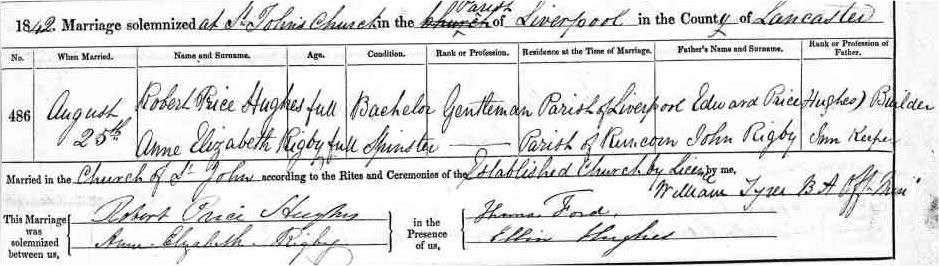 1842. Marriage solemnized at St John's Church in the Church Parish of Liverpool in the County of Lancaster
No. When Married. Name and Surname. Age. Condition. Rank or Profession. Residence at the Time of Marriage. Father's Name and Surname. Rank or Profession of Father.
486 August 25th Robert Price Hughes full Bachelor Gentleman Parish of Liverpool Edward Price (Hughes) Builder
Anne Elizabeth Rigby full Spinster — Parish of Runcorn John Rigby Inn Keeper
Married in the Church of St John according to the Rites and Ceremonies of the Established Church by Licen by me,
William Tyrer B A Off. Min
This Marriage was solemnized between us, Robert Price Hughes in the Presence of us, Thomas Ford
Anne Elizabeth Rigby Ellin Hughes